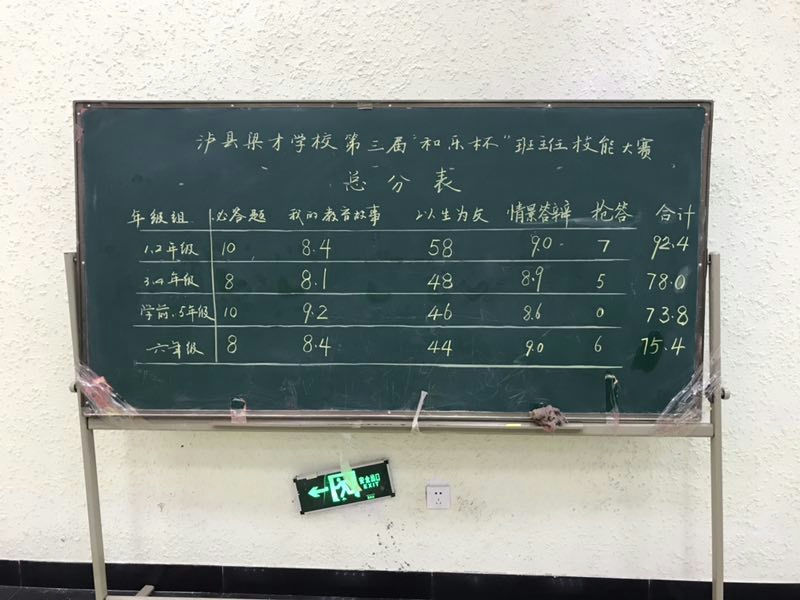 泸县梁才学校第三届“和乐杯”班主任技能大赛
总分表
年级组 必答题 我的教育故事 以生为友 情景答辩 抢答 合计
1.2年级 10 8.4 58 9.0 7 92.4
3.4年级 8 8.1 48 8.9 5 78.0
学前、5年级 10 9.2 46 8.6 0 73.8
六年级 8 8.4 44 9.0 6 75.4
安全出口
EXIT